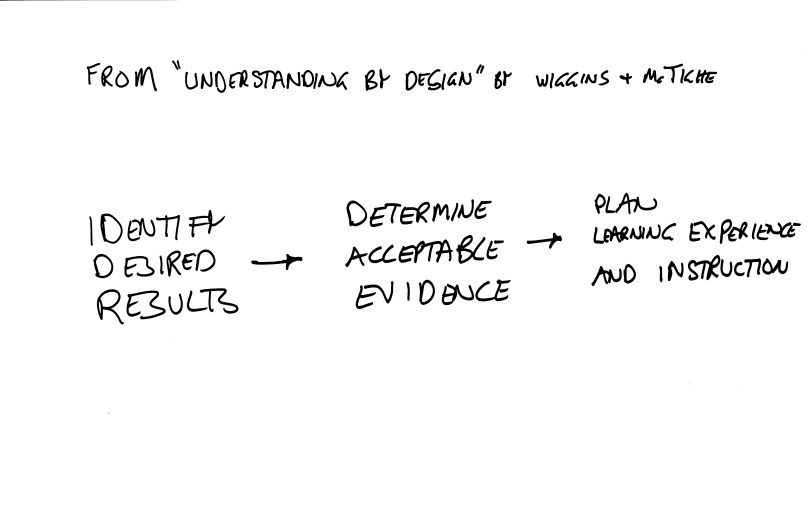 FROM "UNDERSTANDING BY DESIGN" BY WIGGINS + McTIGHE
IDENTIFY
DESIRED
RESULTS
→
DETERMINE
ACCEPTABLE
EVIDENCE
→
PLAN
LEARNING EXPERIENCE
AND INSTRUCTION